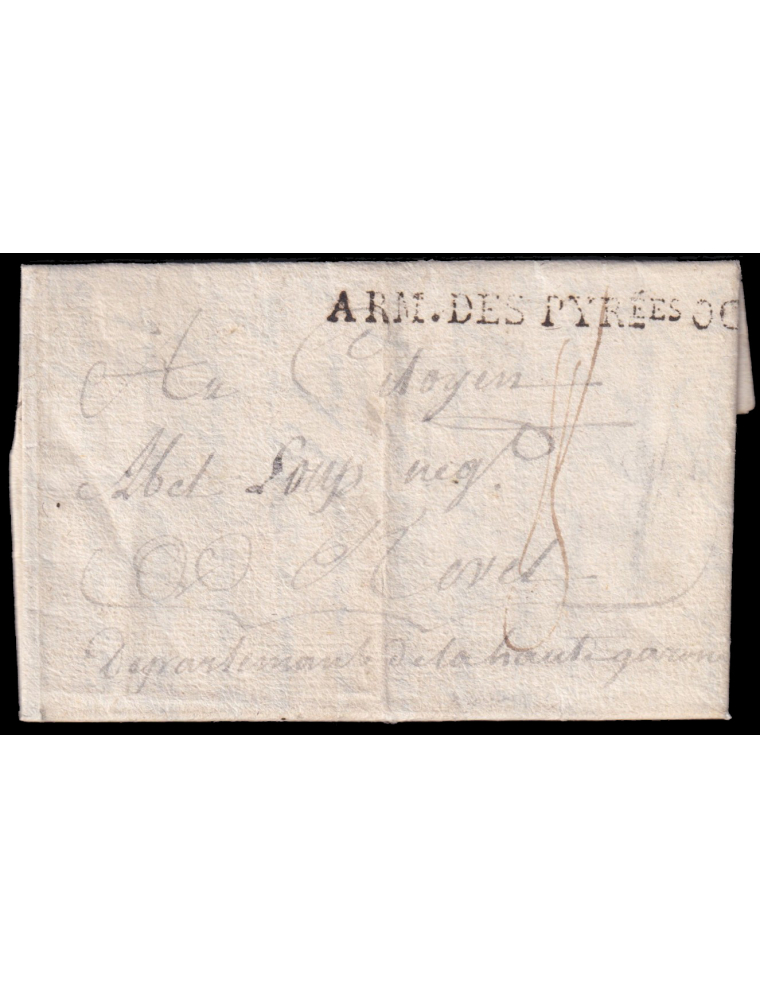 ARM. DES PYRÉES OC
Au Citoyen
Abel Loup neg.t
A Revel
Departemant de la haute garon